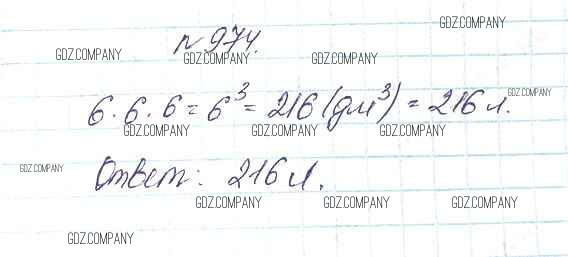 GDZ.COMPANY
№ 974.
GDZ.COMPANY GDZ.COMPANY GDZ.COMPANY
GDZ.COMPANY
6 · 6 · 6 = 6³ = 216 (дм³) = 216 л.
GDZ.COMPANY GDZ.COMPANY GDZ.COMPANY
GDZ.COMPANY
Ответ: 216 л.
GDZ.COMPANY GDZ.COMPANY GDZ.COMPANY
GDZ.COMPANY